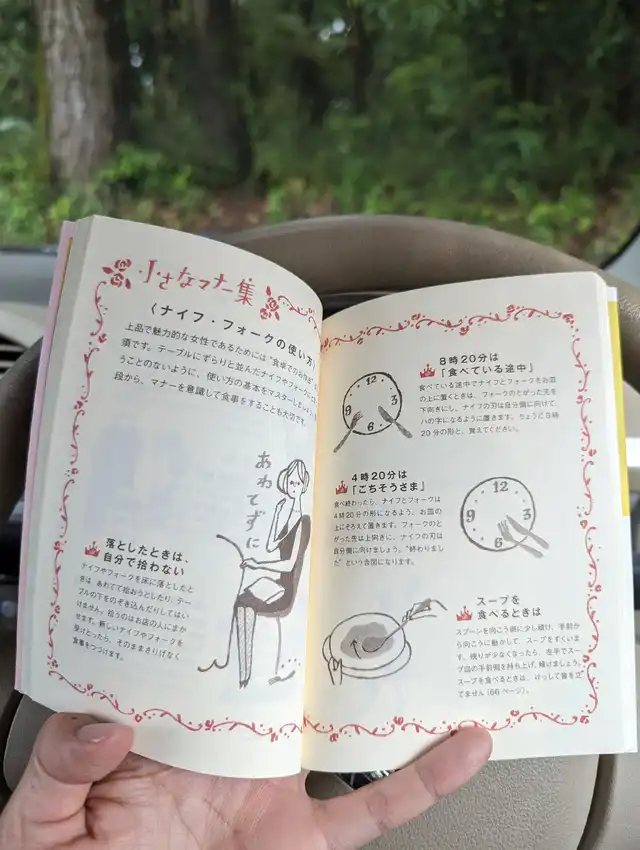 小さなマナー集
〈ナイフ・フォークの使い方〉
上品で魅力的な女性であるためには“食卓でのお作法”
須です。テーブルにずらりと並んだナイフやフォーク
うことのないように、使い方の基本をマスターしましょう
段から、マナーを意識して食事をすることも大切です。
あわてずに
落としたときは、
自分で拾わない
ナイフやフォークを床に落としたと
きは あわてて拾おうとしたり、テー
ブルの下をのぞき込んだりしてはい
けません。拾うのはお店の人にまか
せます。新しいナイフやフォークを
受けとったら、そのままさりげなく
食事をつづけます。
8時20分は
「食べている途中」
食べている途中でナイフとフォークをお皿
の上に置くときは、フォークのとがった先を
下向きにし、ナイフの刃は自分側に向けて、
ハの字になるように置きます。ちょうど8時
20分の形と、覚えてください。
12
9
3
4時20分は
「ごちそうさま」
食べ終わったら、ナイフとフォークは
4時20分の形になるよう、お皿の
上にそろえて置きます。フォークのと
がった先は上向きに、ナイフの刃は
自分側に向けましょう。“終わりまし
た”という合図になります。
12
9
3
6
スープを
食べるときは
スプーンを向こう側に少し傾け、手前か
ら向こうに動かして、スープをすくいま
す。残りが少なくなったら、左手でスー
プ皿の手前側を持ち上げ、傾けましょう。
スープを食べるときは、けっして音を立
てません(66ページ)。